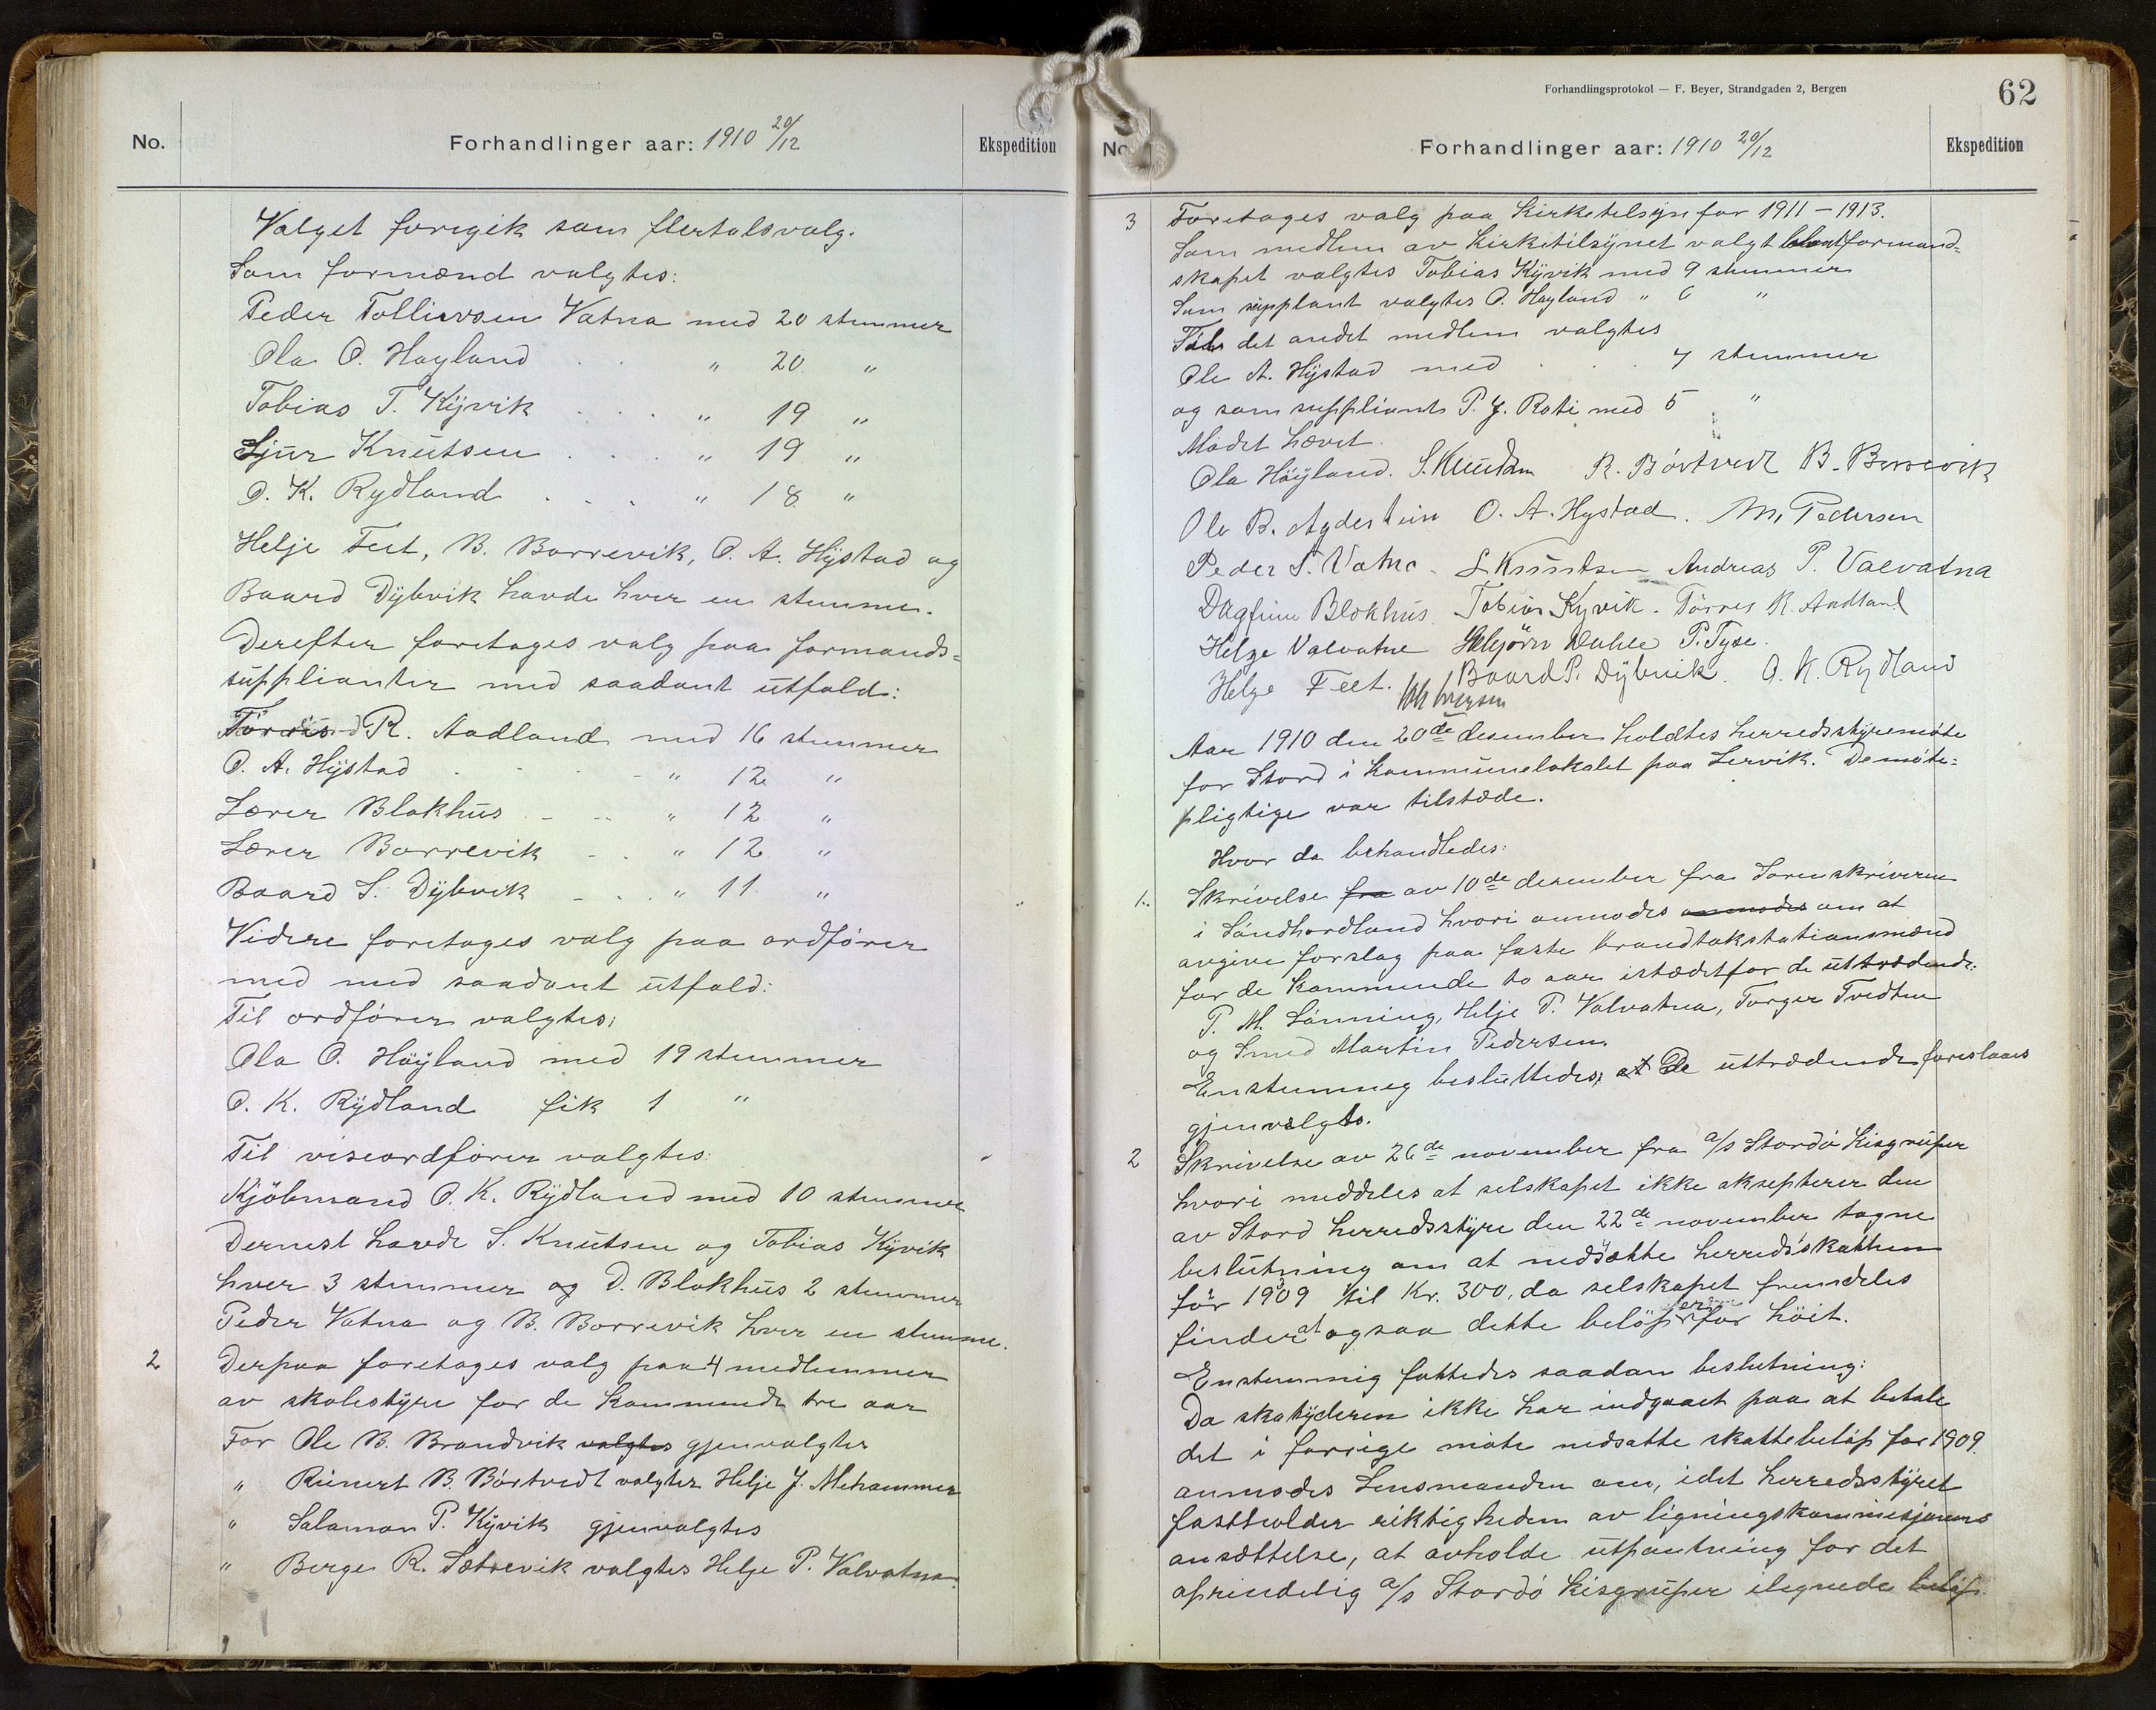 No.
Forhandlinger aar: 1910 20/12
Ekspedition
Valget foregik som flertalsvalg.
Som formænd valgtes:
Peder Tollievsen Vatna med 20 stemmer
Ola O. Høyland . . " 20 "
Tobias T. Kÿvik . . . " 19 "
Sjur Knutsen . . . " 19 "
O. K. Rydland . . . " 18 "
Helje Feet, B. Borrevik, O. A. Hÿstad og
Baard Dÿbvik havde hver en stemme.
Derefter foretages valg paa formands=
supplianter med saadant utfald:
Törris R. Aadland med 16 stemmer
O. A. Hÿstad . . . . " 12 "
Lærer Blokhus . - .. " 12 "
Lærer Borrevik - . " 12 "
Baard S. Dÿbvik - . . " 11 "
Videre foretages valg paa ordfører
med med saadant utfald:
Til ordfører valgtes:
Ola O. Höÿland med 19 stemmer
O. K. Rÿdland fik 1 "
Til viseordfører valgtes:
Kjöbmand O. K. Rÿdland med 10 stemmer
Dernest havde S. Knutsen og Tobias Kÿvik
hver 3 stemmer og D. Blokhus 2 stemmer
Peder Vatna og B. Borrevik hver en stemme.
2 Derpaa foretages valg paa 4 medlemmer
av skolestÿre for de kommende tre aar
For Ole B. Brandvik valgtes gjenvalgtes
" Reinert B. Børtvedt valgtes Helje J. Mehammer
" Salamon P. Kÿvik gjenvalgtes
" Berge R. Sætrevik valgtes Helje P. Valvatna.
Forhandlingsprotokol — F. Beyer, Strandgaden 2, Bergen
62
No.
Forhandlinger aar: 1910 20/12
Ekspedition
3 Foretages valg paa kirketilsÿn for 1911 – 1913.
Som medlem av kirketilsÿnet valgt blant formand=
skapet valgtes Tobias Kÿvik med 9 stemmer
Som supplant valgtes O. Høyland " 6 "
Til det andet medlem valgtes
Ole A. Hÿstad med . . . 7 stemmer
og som suppliant P. J. Roti med 5 "
Mødet hævet
Ola Höÿland. S. Knutsen R. Børtvedt B. Borrevik
Ole B. Agdestein O. A. Hystad. M. Pedersen
Peder T. Vatna. L Knutsen Andreas P. Valvatna
Dagfinn Blokhus. Tobias Kyvik. Törres R. Aadland
Helge Valvatne Dahle P. Tyse.
Helge Feet. Baard P. Dÿbvik. O. K. Rydland
Aar 1910 den 20de desember holdtes herredsstÿremøte
for Stord i kommunelokalet paa Lervik. De møte=
pligtige var tilstæde.
Hvor da behandledes:
1. Skrivelse fra av 10de desember fra Sorenskriveren
i Søndhordland hvori anmodes anmodes om at
avgive forslag paa faste brandtakstationsmænd
for de kommende to aar istædetfor de uttrædende:
P. M. Lønning, Helje P. Valvatna, Torger Tvedten
og Smed Martin Pedersen.
Enstemmeg besluttedes; at De uttrædende foreslaaes
gjenvalgte.
2 Skrivelse av 26de november fra a/s Stordö Kisgruber
hvori meddeles at selskapet ikke aksepterer den
av Stord herredsstÿre den 22de november tagne
beslutning om at nedsætte herredsskatten
för 1909 til Kr. 300, da selskapet fremdeles
finder at ogsaa dette beløp er for höit.
Enstemmig fattedes saadan beslutning:
Da skatÿderen ikke har indgaaet paa at betale
det i forrige møte nedsatte skattebeløp for 1909.
anmodes Lensmanden om, idet herredsstÿret
fastholder riktigheden av ligningskommisjonens
ansættelse, at avholde utpantning for det
oprindelig a/s Stordö kisgruber ilignede beløp.